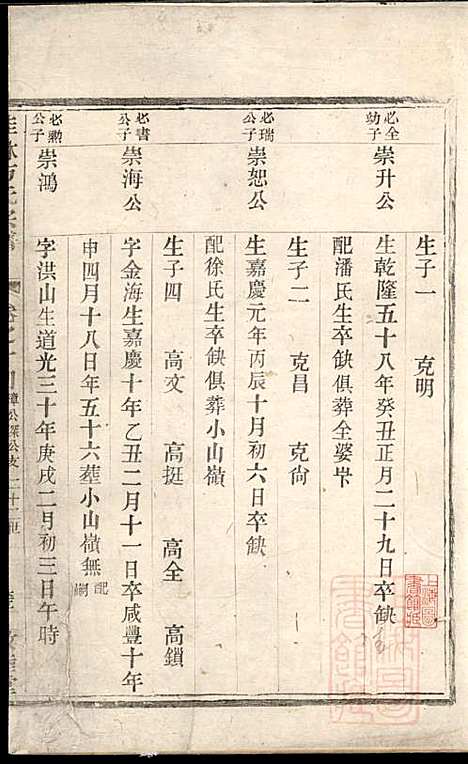 生子一 克明
必全幼子 崇升公 生乾隆五十八年癸丑正月二十九日卒缺
配潘氏生卒缺俱葬全婆
生子二 克昌 克尚
必瑞公子 崇恕公 生嘉慶元年丙辰十月初六日卒缺
配徐氏生卒缺俱葬小山嶺
生子四 高文 高挺 高全 高鎖
必書公子 崇海公 字金海生嘉慶十年乙丑二月十一日卒咸豐十年
申四月十八日年五十六葬小山嶺無配嗣
必勲公子 崇鴻 字洪山生道光三十年庚戌二月初三日午時
上海圖書館藏